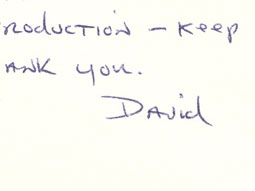 roduction – keep
ank you.
David